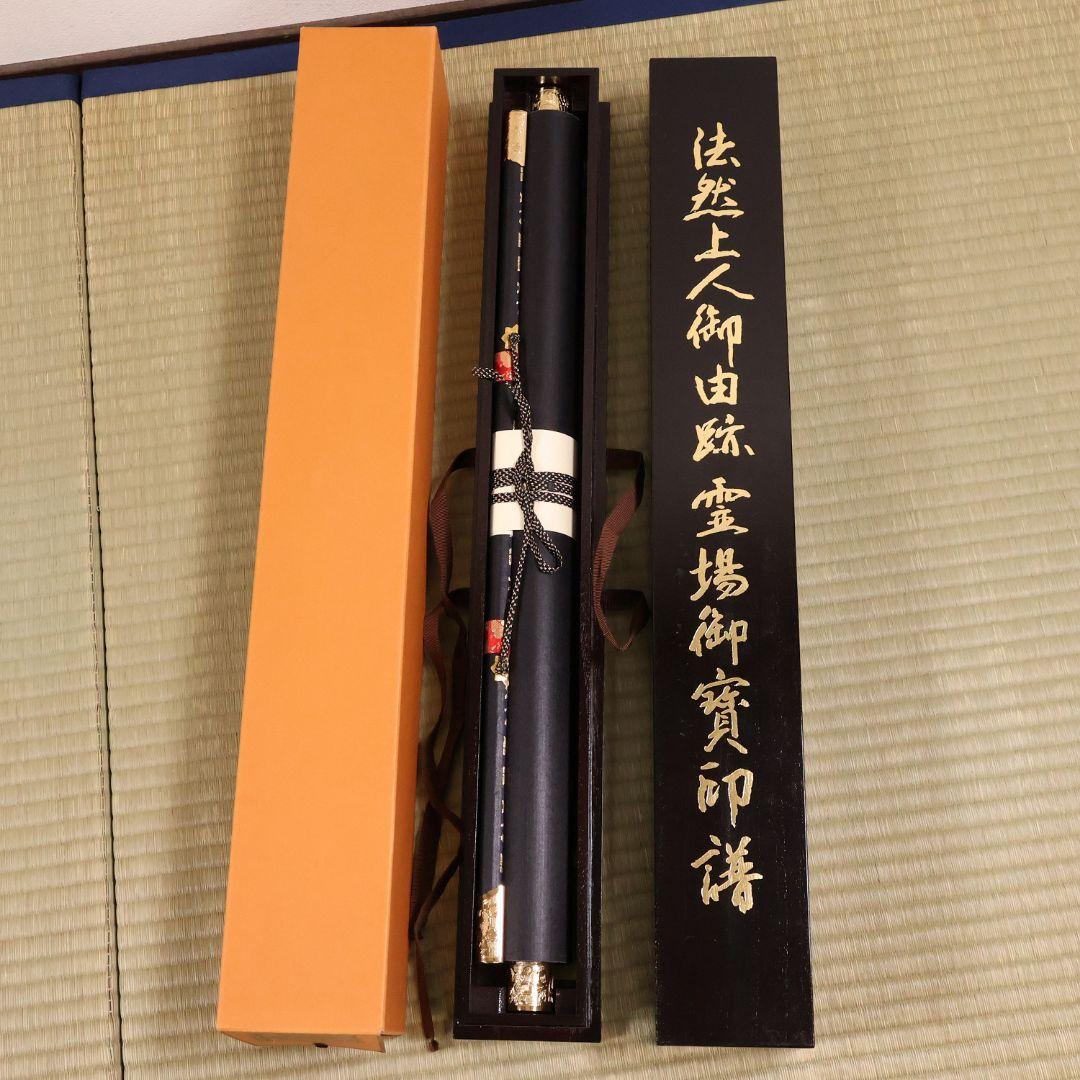 法然上人御由跡霊場御寳印譜